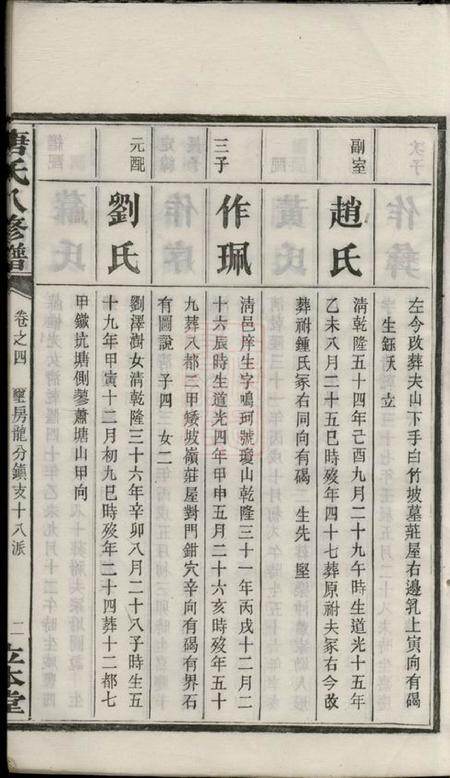 左今改葬夫山下手白竹坡墓莊屋右邊乳上寅向有碣
生鈺 立
副室
趙氏
清乾隆五十四年己酉九月二十九午時生道光十五年
乙未八月二十五巳時歿年四十七葬原祔夫冢右今改
葬祔鍾氏冢右同向有碣 生先堅
三子
作珮
清邑庠生字鳴珂號瓊山乾隆三十一年丙戌十二月二
十六辰時生道光四年甲申五月二十六亥時歿年五十
九葬八都二甲矮坡嶺莊屋對門鉗穴辛向有碣有界石
有圖說 子四 女二
元配
劉氏
劉澤澍女清乾隆三十六年辛卯八月二十八子時生五
十九年甲寅十二月初九巳時歿年二十四葬十二都七
甲鐵坑塘側蓼蕭塘山甲向
唐氏八修譜
卷之四
房龍分鎮支十八派
二